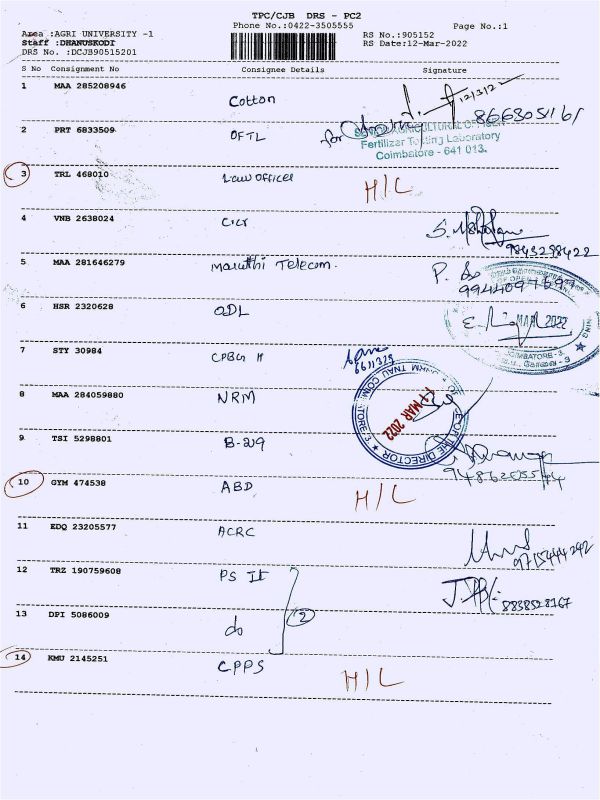 TPC/CJB DRS - PC2
Phone No.:0422-3505555
Page No.:1
Area :AGRI UNIVERSITY -1
Staff :DHANUSKODI
DRS No. :DCJB90515201
RS No.:905152
RS Date:12-Mar-2022
S No Consignment No Consignee Details Signature
1 MAA 285208946 Cotton 12/3/22
8663051161
2 PRT 6833509 OFTL for
SENIOR AGRICULTURAL OFFICER
Fertilizer Testing Laboratory
Coimbatore - 641 013.
3 TRL 468010 Law officer H/L
4 VNB 2638024
9843298422
5 MAA 281646279 Maruthi Telecom.
6 HSR 2320628 ODL
MAR 2022
COIMBATORE - 3
7 STY 30984 CPBG II
6611329
8 MAA 284059880 NRM
12 MAR 2022
FOR THE DIRECTOR
9 TSI 5298801 B-29
10 GYM 474538 ABD H/L
11 EDQ 23205577 ACRC
9715444242
12 TRZ 190759608 PS II
8838528167
13 DPI 5086009 do 2
14 KMU 2145251 CPPS H/L